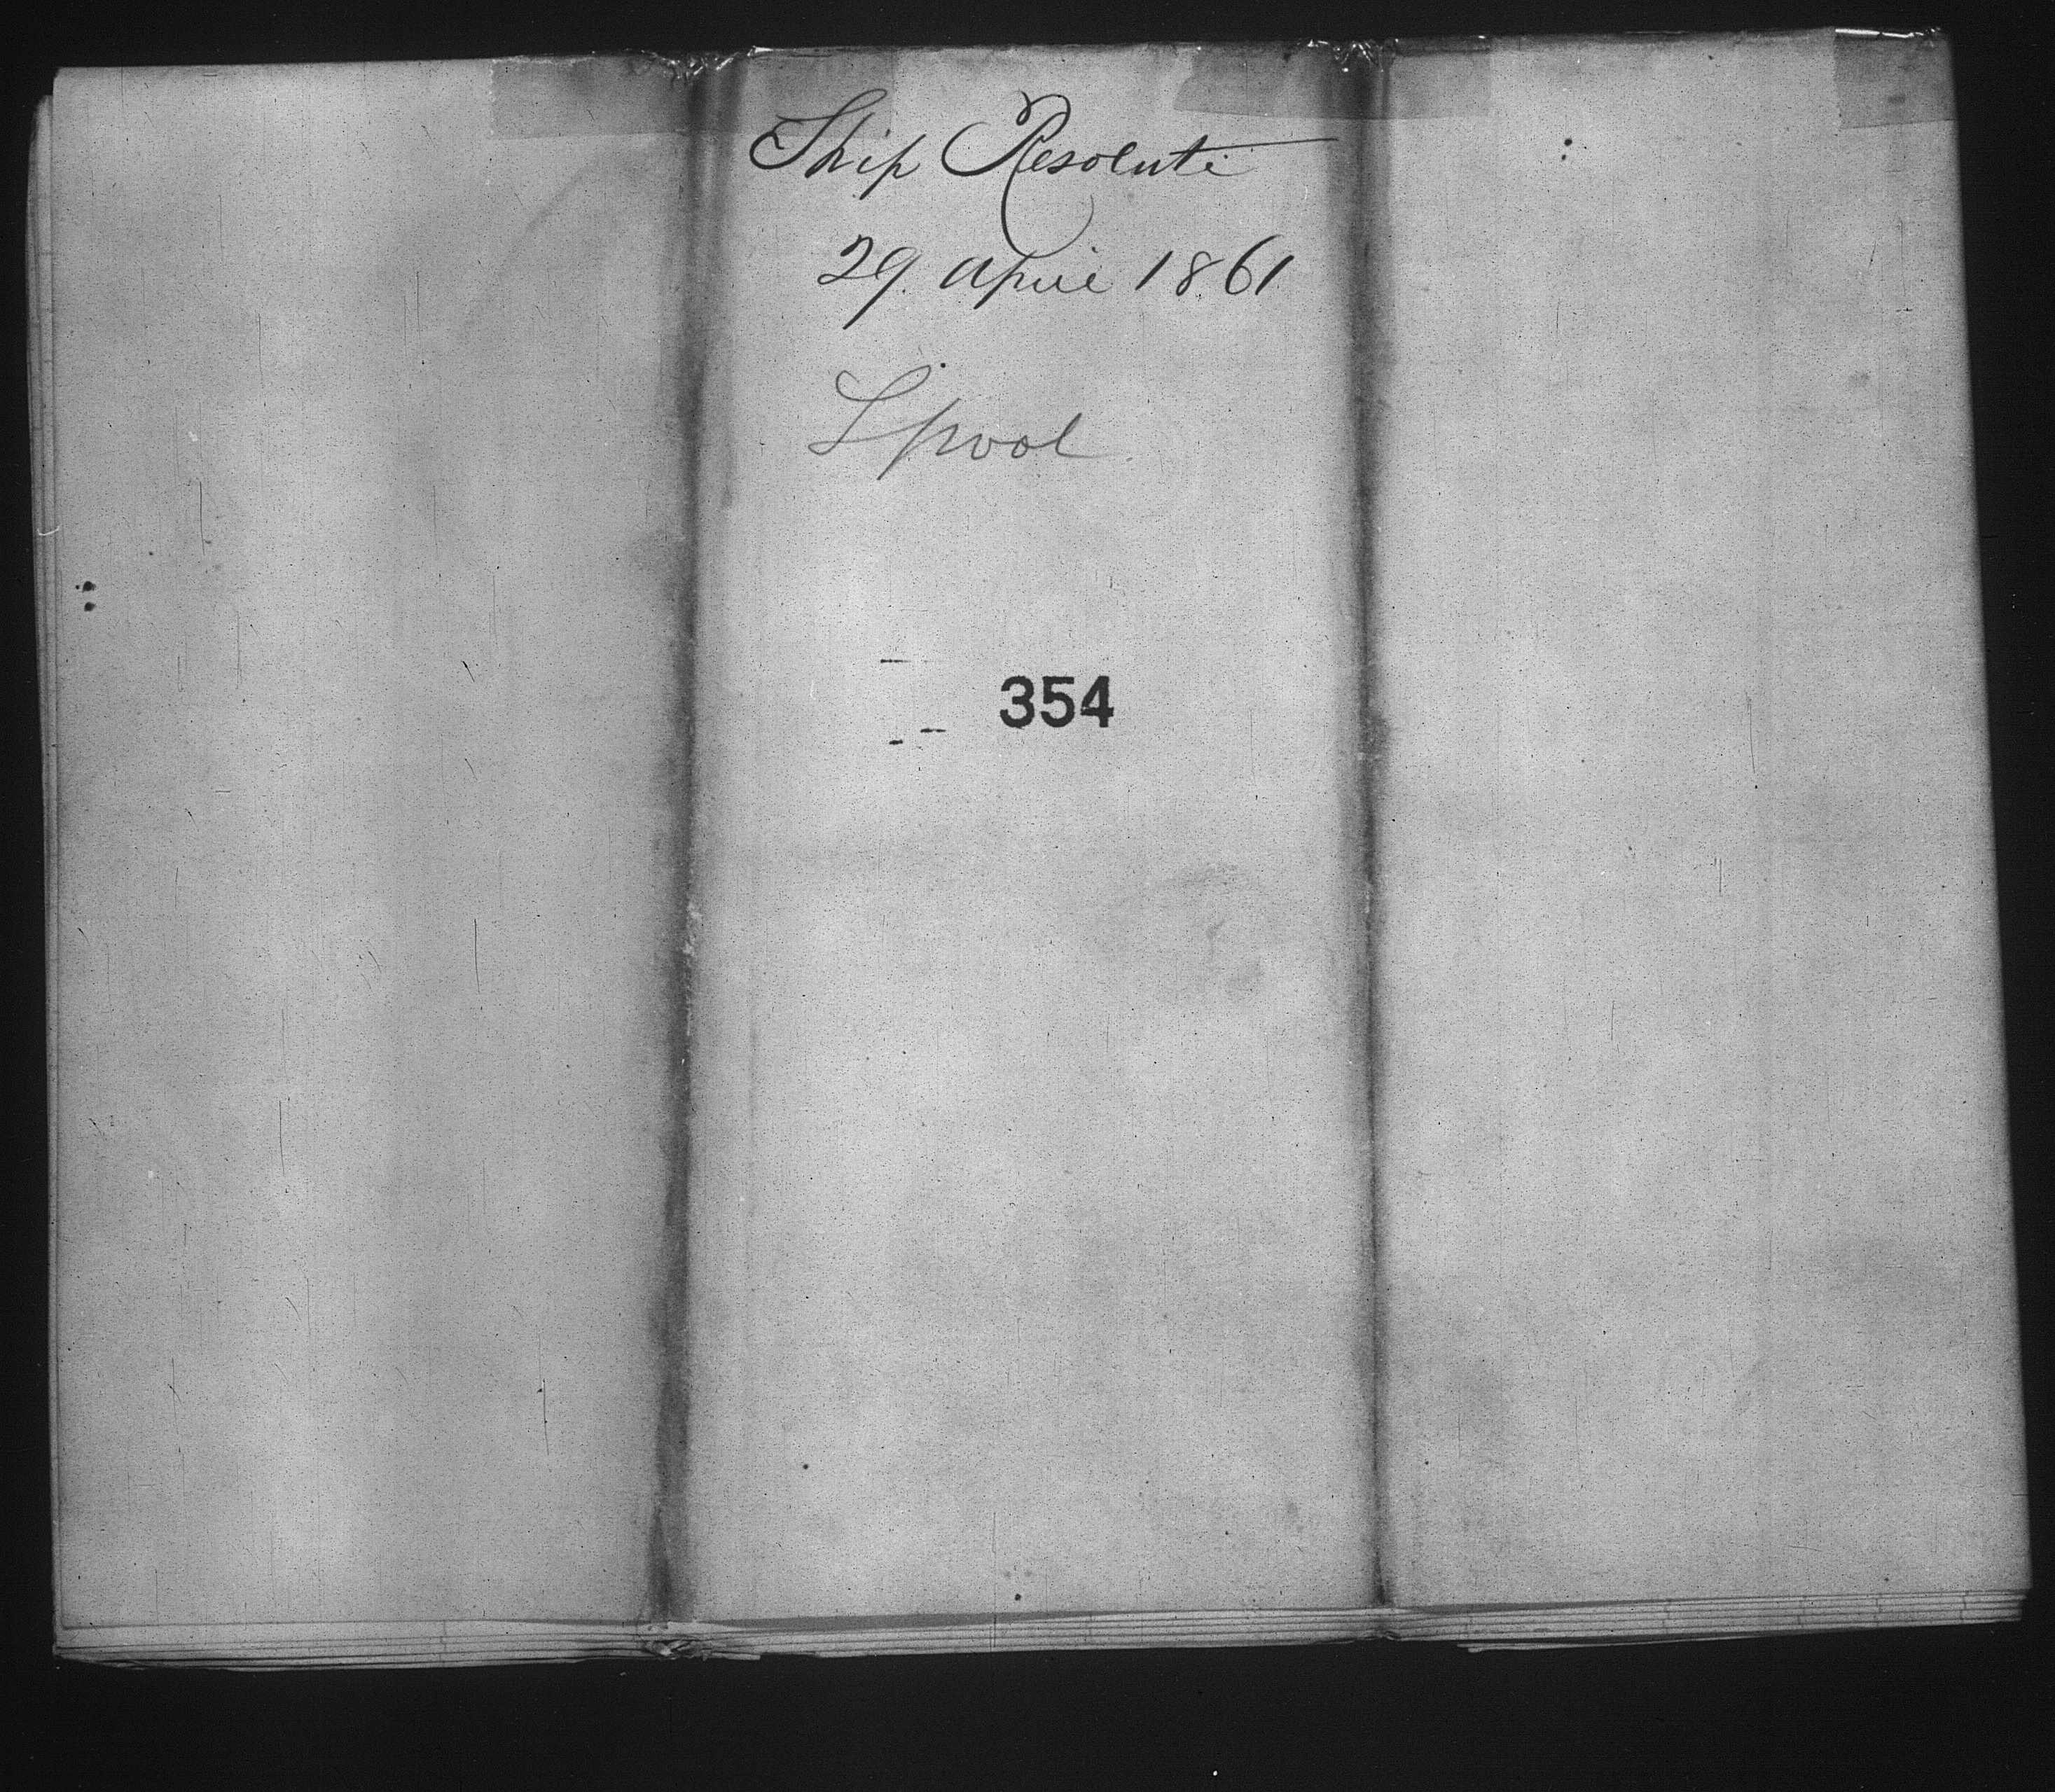 Ship Resolute
29. April 1861
Lpool
354